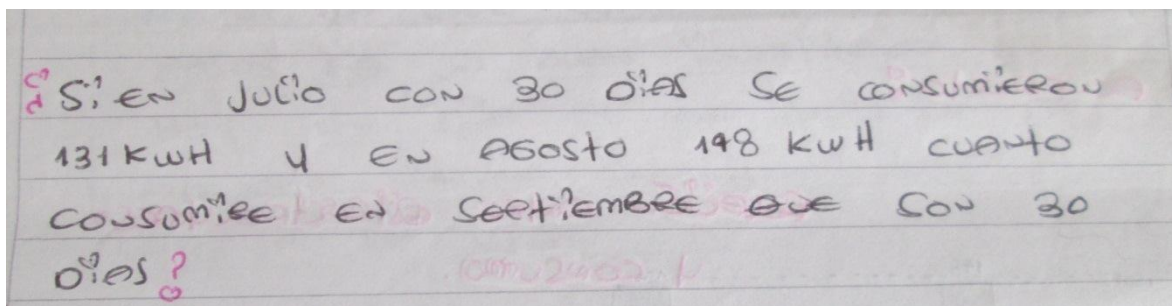 ¿Si EN JULIO CON 30 DÍAS SE CONSUMIERON
131 KWH Y EN AGOSTO 148 KWH CUANTO
CONSUMIRE EN SEPTIEMBRE QUE SON 30
DÍAS?